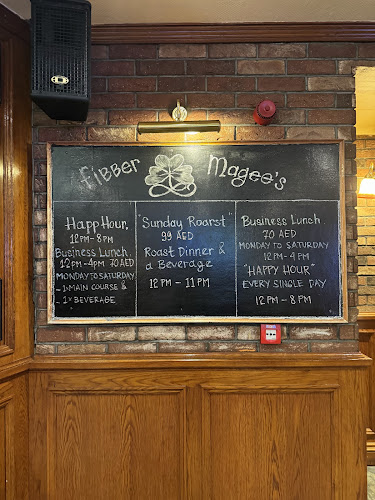 Fibber Magee's
Happ Hour,
12PM-8PM
Business Lunch,
12PM-4PM 70 AED
MONDAY TO SATURDAY
- 1x MAIN COURSE &
- 1x BEVERAGE
"Sunday Roarst"
99 AED
Roast Dinner &
a Beverage
12 PM - 11 PM
Business Lunch.
70 AED
MONDAY TO SATURDAY
12PM-4PM
"HAPPY HOUR"
EVERY SINGLE DAY
12 PM - 8 PM